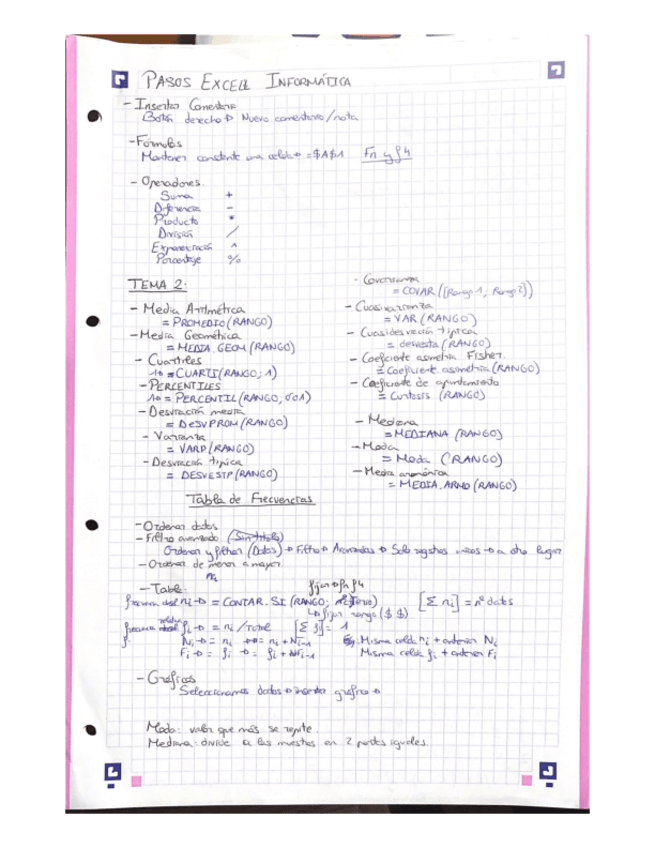 PASOS EXCELL INFORMÁTICA
- Insertar Comentario
Botón derecho → Nuevo comentario/nota
- Fórmulas
Mantener constante una celda → = $A$1 Fn y f4
- Operadores.
Suma +
Diferencia -
Producto *
División /
Exponenciación ^
Porcentaje %
TEMA 2:
- Media Aritmética
= PROMEDIO (RANGO)
- Media Geométrica
= MEDIA.GEOM (RANGO)
- Cuartiles
1º = CUARTS (RANGO; 1)
- PERCENTILES
1º = PERCENTIL (RANGO, 0'01)
- Desviación media
= DESVPROM (RANGO)
- Varianza
= VARP (RANGO)
- Desviación típica
= DESVESTP (RANGO)
- Covarianza
= COVAR ((Rango 1, Rango 2))
- Cuasivarianza
= VAR (RANGO)
- Cuasidesviación típica
= desvesta (RANGO)
- Coeficiente asimetría Fisher.
= Coeficiente asimetría (RANGO)
- Coeficiente de apuntamiento
= Curtosis (RANGO)
- Mediana
= MEDIANA (RANGO)
- Moda
= Moda (RANGO)
- Media armónica
= MEDIA.ARMO (RANGO)
Tabla de Frecuencias
- Ordenar datos
- Filtro avanzado
Ordenar y filtrar (Datos) → Filtro → Avanzadas → Solo registros únicos → a otro lugar
- Ordenar de menor a mayor.
ni
- Tabla: fijar → fn f4
ni → = CONTAR.SI (RANGO; [Σ ni] = nº datos
↳ fijar rango ($ $)
fi → = ni / TOTAL [Σ fi] = 1
Ni → = ni → = ni + Ni-1 Eg: Misma celda ni + anterior Ni
Fi → = fi → = fi + Fi-1 Misma celda fi + anterior Fi
- Gráficos
Seleccionamos datos → insertar gráfico →
Moda: valor que más se repite.
Mediana: divide a las muestras en 2 partes iguales.